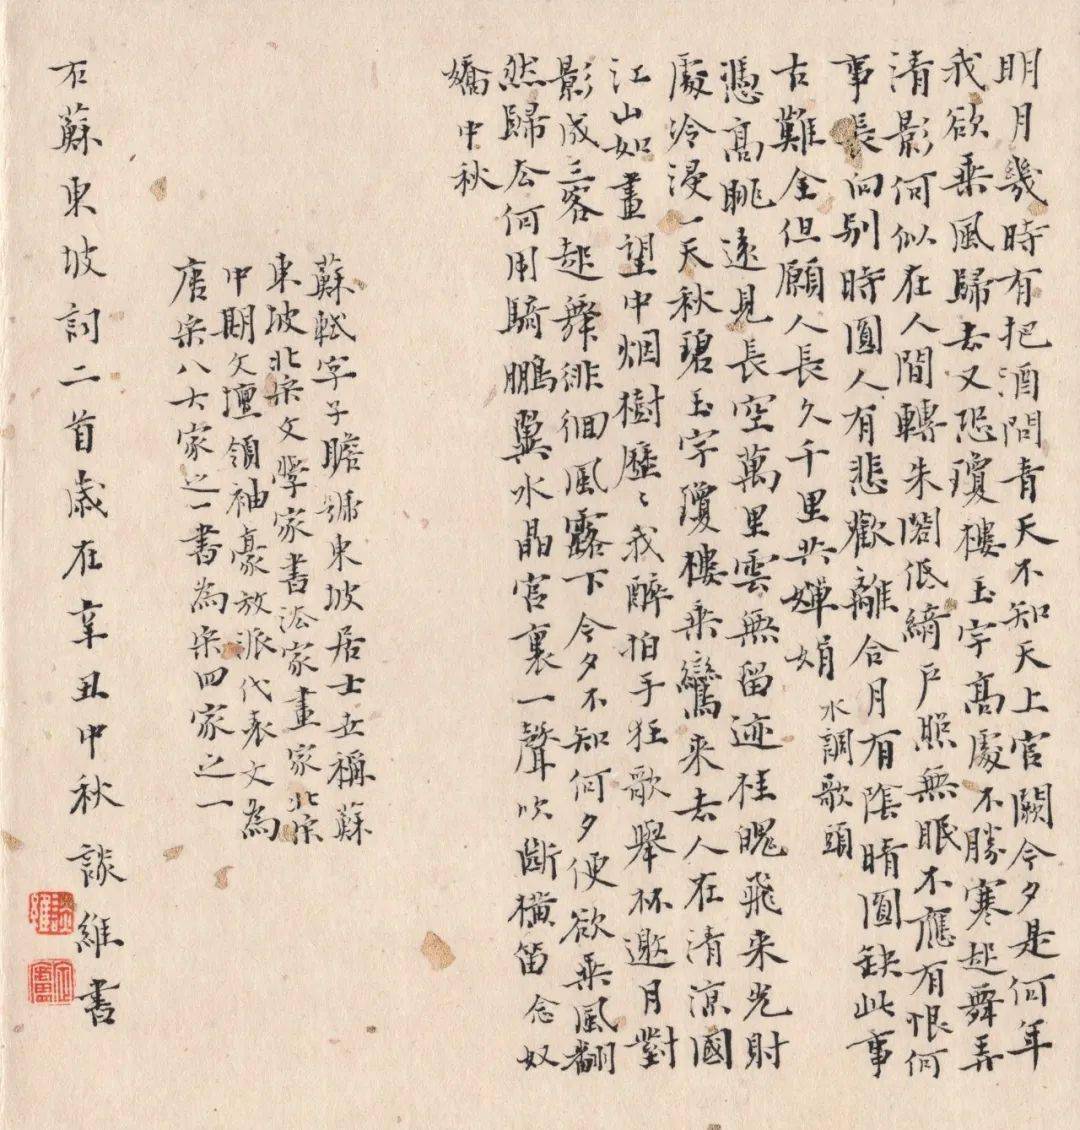 明月幾時有把酒問青天不知天上宫闕今夕是何年
我欲乘風歸去又恐瓊樓玉宇髙處不勝寒起舞弄
清影何似在人間轉朱閣低綺户照無眠不應有恨何
事長向别時圓人有悲歡離合月有陰晴圓缺此事
古難全但願人長久千里共嬋娟 水調歌頭
憑髙眺遠見長空萬里雲無留迹桂魄飛来光射
處冷浸一天秋碧玉宇瓊樓乘鸞来去人在清凉國
江山如畫望中烟樹歷〻我醉拍手狂歌舉杯邀月對
影成三客起舞徘徊風露下今夕不知何夕便欲乘風翻
然歸去何用騎鵬翼水晶宫裏一聲吹斷横笛 念奴
嬌中秋
蘇軾字子瞻號東坡居士世稱蘇
東坡北宋文學家書法家畫家北宋
中期文壇領袖豪放派代表文為
唐宋八大家之一書為宋四家之一
右蘇東坡詞二首歲在辛丑中秋談維書
談維